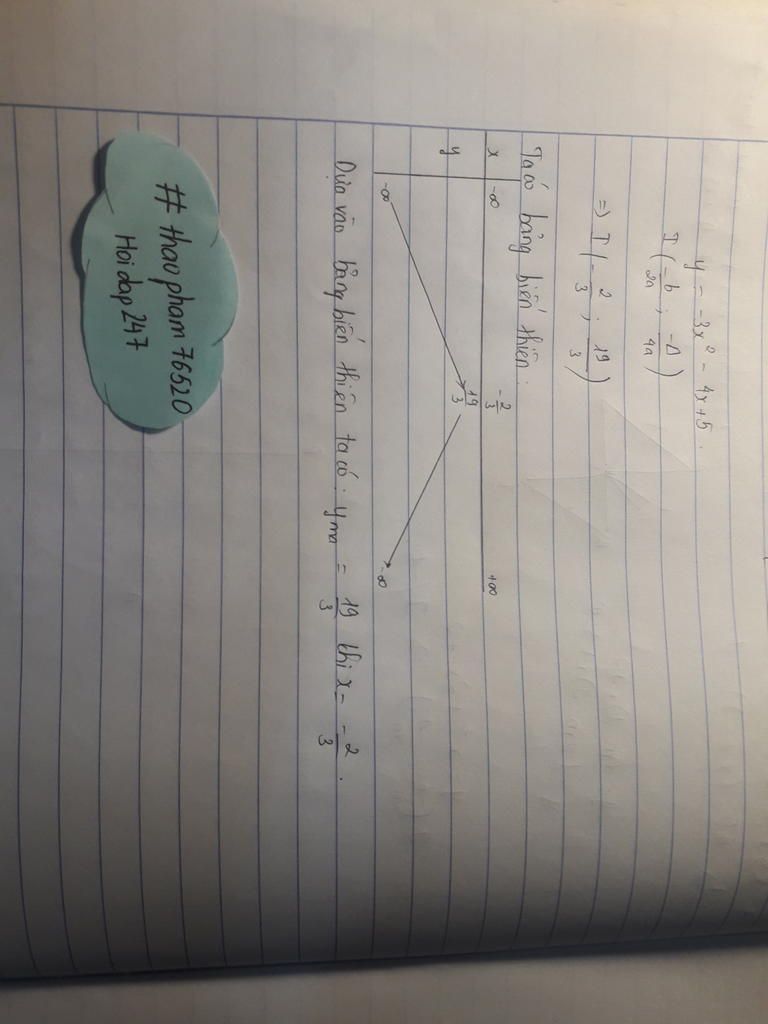 y = -3x² - 4x + 5.
I ( -b/2a ; -Δ/4a )
=> I ( -2/3 ; 19/3 )
Ta có bảng biến thiên:
x -∞ -2/3 +∞
y 19/3
-∞ -∞
Dựa vào bảng biến thiên ta có: yma = 19/3 khi x = -2/3.
# thaopham76520
Hoidap247